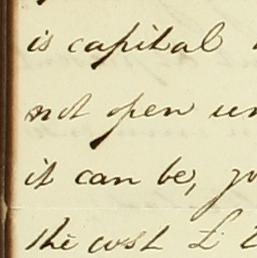 is capital
not open un
it can be, yo
the cost £ 2